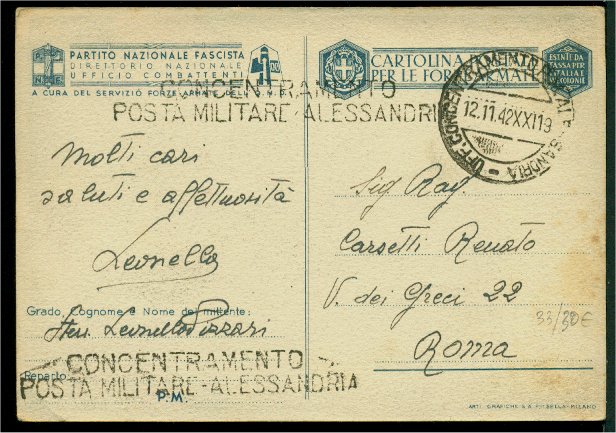 PARTITO NAZIONALE FASCISTA
DIRETTORIO NAZIONALE
UFFICIO COMBATTENTI
A CURA DEL SERVIZIO FORZE ARMATE DELL'U.N.D.
CONCENTRAMENTO
POSTA MILITARE-ALESSANDRI
molti cari
saluti e affettuosità
Leonello
Grado, Cognome e Nome del mittente:
Leonello
Reparto
CONCENTRAMENTO
POSTA MILITARE-ALESSANDRIA
P.M.
CARTOLINA
PER LE FORZE ARMATE
ESENTE DA
TASSA PER
ITALIA E
COLONIE
UFF. CONCENTRAMENTO
12.11.42XXI19
SANDRIA
Sig Rag.
Carsetti Renato
V. dei Greci 22
33/30€
Roma
ARTI GRAFICHE MILANO